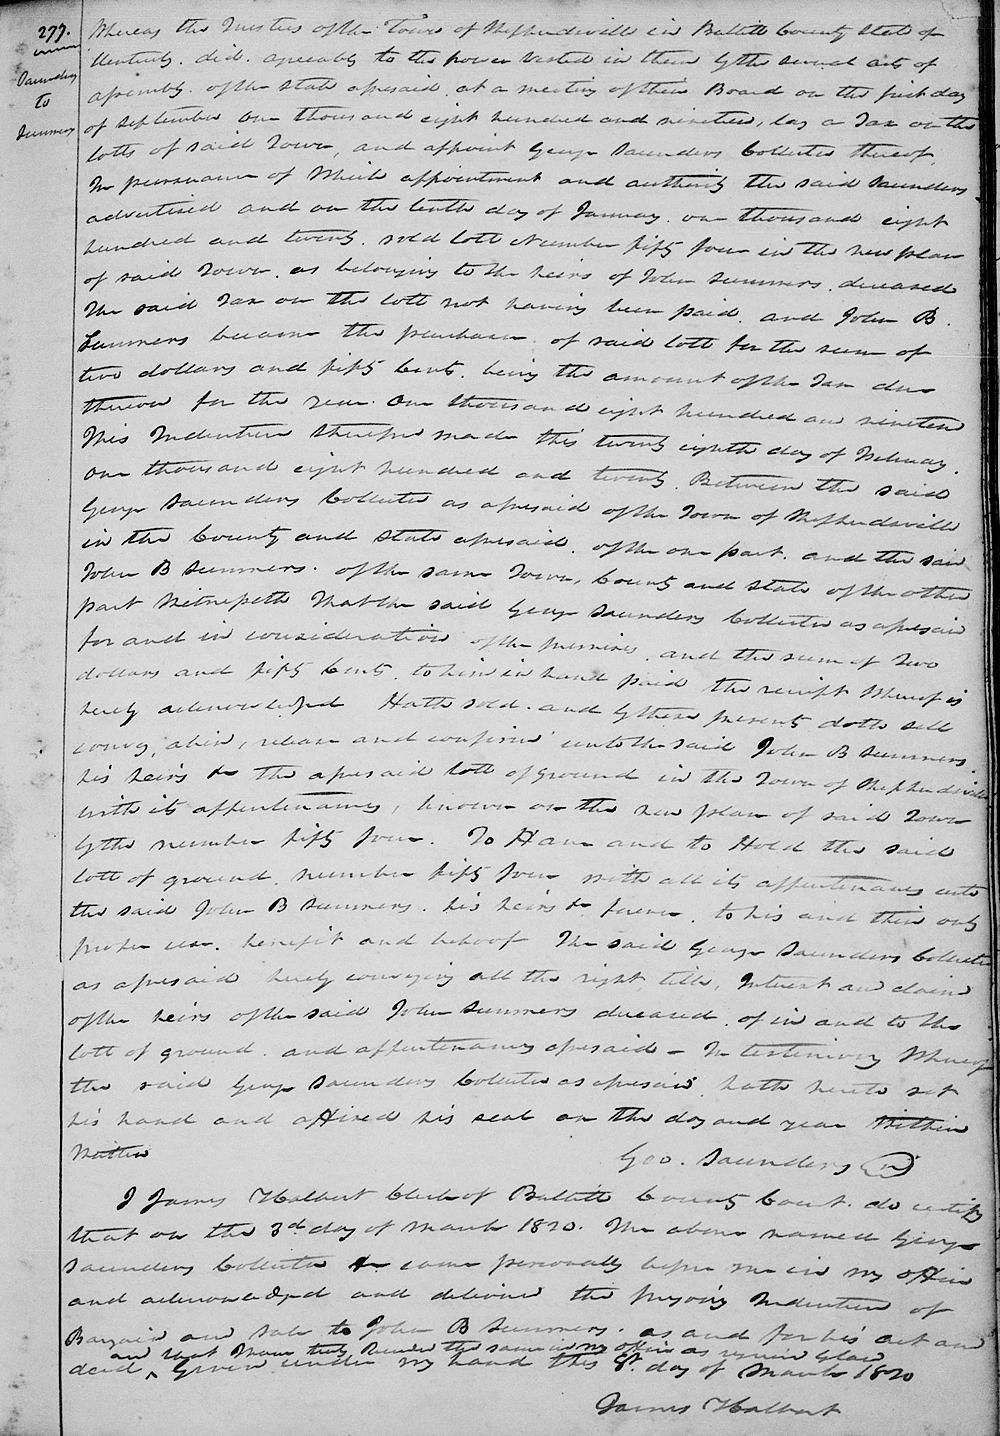 277.
Saunders
to
Summers
Whereas the Trustees of the Town of Shepherdsville in Bullitt County State of
Kentucky. did. agreeably to the power vested in them by the several acts of
assembly. of the state aforesaid. at a meeting of their Board on the first day
of September one thousand eight hundred and nineteen, lay a Tax on the
lotts of said Town, and appoint George Saunders Collector thereof
In pursuance of which appointment and authority the said Saunders
advertised and on the tenth day of January. one thousand eight
hundred and twenty. sold lott Number fifty four in the new plan
of said Town. as belonging to the heirs of John Summers. deceased
The said Tax on the lott not having been paid. and John B.
Summers became the purchaser. of said lott for the sum of
two dollars and fifty Cents. being the amount of the Tax due
thereon for the year. One thousand eight hundred and nineteen
This Indenture therefore made this twenty eighth day of February.
one thousand eight hundred and twenty. Between the said
George Saunders Collector as aforesaid of the Town of Shepherdsville
in the County and State aforesaid. of the one part. and the said
John B Summers. of the same Town, County and State of the other
part Witnesseth That the said George Saunders Collector as aforesaid
for and in consideration of the premises. and the sum of Two
dollars and fifty Cents. to him in hand paid the receipt Whereof is
hereby acknowledged Hath sold. and by these presents doth sell
convey, alien, release and confirm unto the said John B Summers.
his heirs &c the aforesaid lott of ground in the Town of Shepherdsville
with its appurtenances, known on the new plan of said Town
by the number fifty four. To Have and to Hold the said
lott of ground. number fifty four with all its appurtenances unto
the said John B Summers. his heirs &c forever. to his and their only
proper use. benefit and behoof The said George Saunders Collector
as aforesaid hereby conveying all the right title, Interest and claim
of the heirs of the said John Summers deceased. of in and to the
lott of ground. and appurtenances aforesaid - In testimony Whereof
the said George Saunders Collector as aforesaid hath hereto set
his hand and affixed his seal on the day and year Within
Written
Geo. Saunders
I James Halbert Clerk of Bullitt County Court. do certify
that on the 3d day of March 1820. The above named George
Saunders Collector &c came personally before me in my office
and acknowledged and delivered the foregoing Indenture of
Bargain and Sale to John B Summers. as and for his act and
and that I have truly Recorded the same in my office as
deed ^ Given under my hand this 8th. day of March 1820
James Halbert